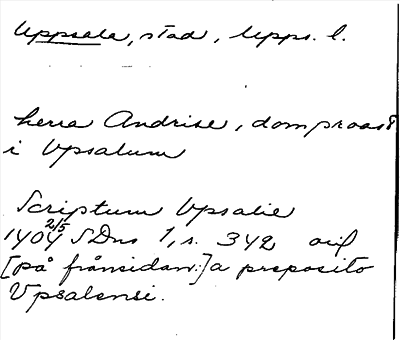 Uppsala, stad, Upps. l.
herra Andrise, domproast
i Vpsalum
Scriptum Vpsalie
1404 2/5 SDns 1, s. 342 avil
[på frånsidan:] a preposito
Vpsalensi.